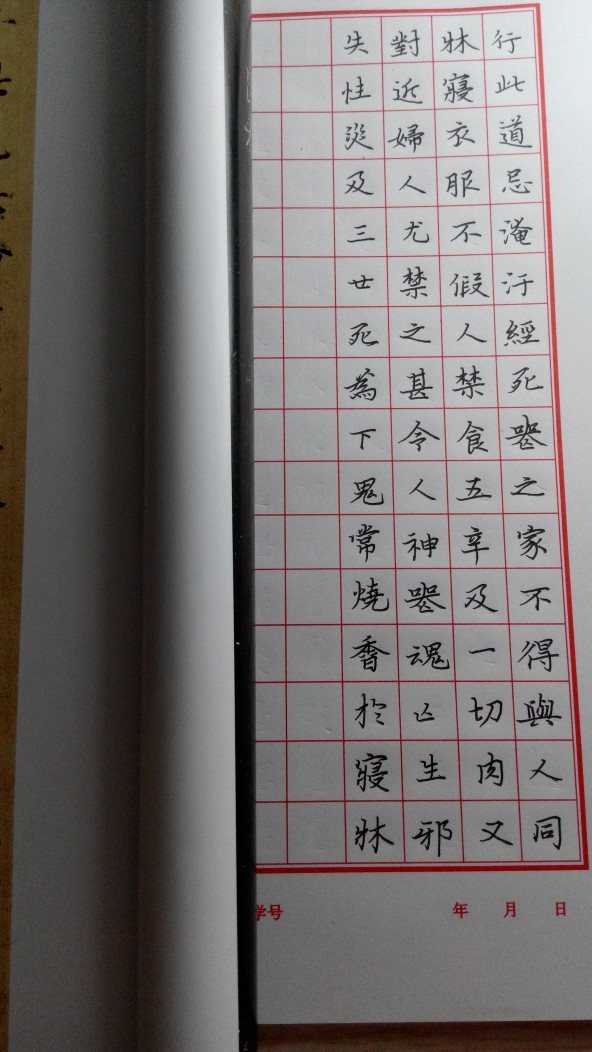 行此道忌淹汙經死喪之家不得與人同
牀寢衣服不假人禁食五辛及一切肉又
對近婦人尤禁之甚令人神喪魂亡生邪
失性災及三世死為下鬼常燒香於寢牀
学号 年 月 日